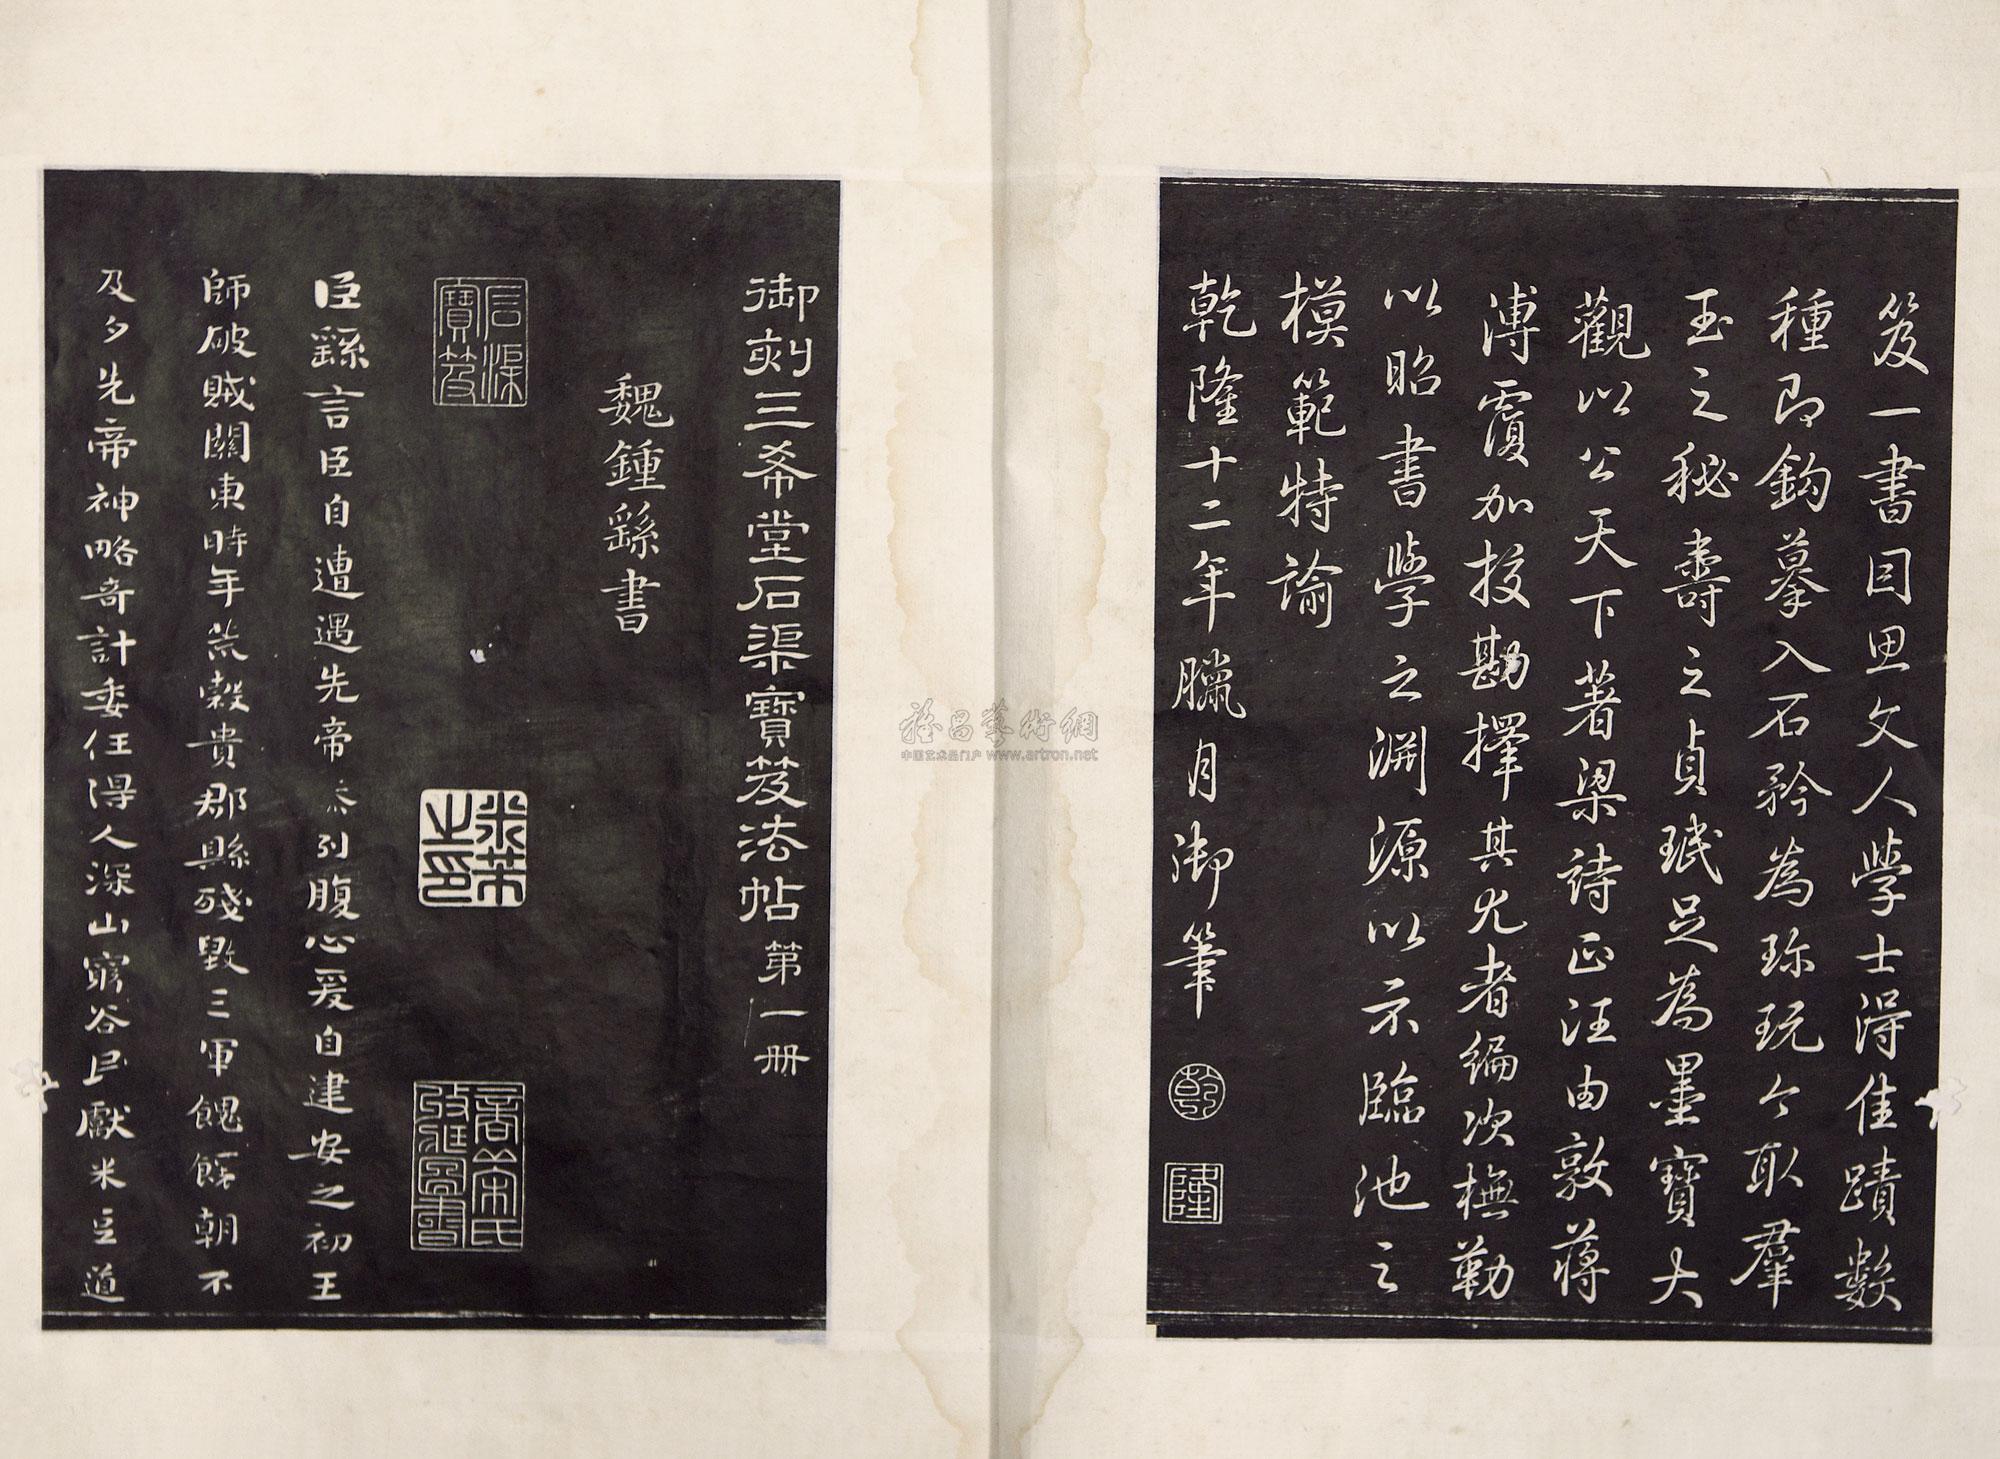 笈一書因思文人學士得佳蹟數
種即鈎摹入石矜為珎玩今取羣
玉之秘壽之貞珉足為墨寶大
觀以公天下著梁詩正汪由敦蔣
溥覆加挍勘擇其尤者編次橅勒
以昭書學之淵源以示臨池之
模範特諭
乾隆十二年臘月御筆
乾
隆
御刻三希堂石渠寶笈法帖第一冊
魏鍾繇書
石渠寶笈
米芾之印
臣繇言臣自遭遇先帝忝列腹心爰自建安之初王
師破賊關東時年荒穀貴郡縣殘毀三軍餽饟朝不
及夕先帝神略奇計委任得人深山窮谷民獻米豆道
雅昌藝術網
中国艺术品门户 www.artron.net